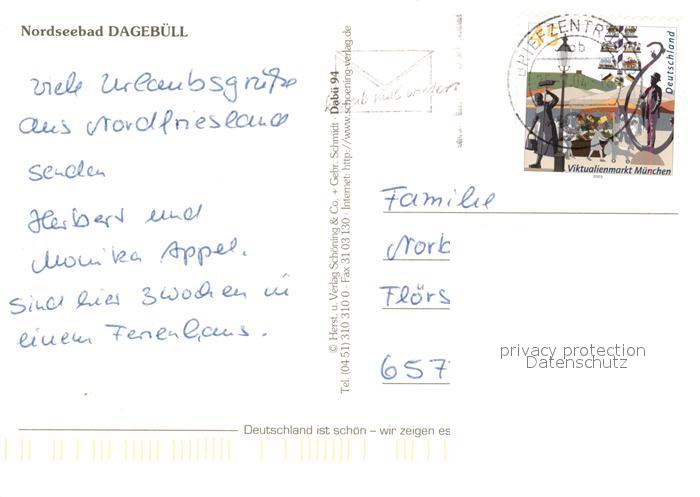 Nordseebad DAGEBÜLL
viele Urlaubsgrüße
aus Nordfriesland
senden
Herbert und
Monika Appel.
Sind hier 3 Wochen in
einem Ferienhaus.
© Herst. u. Verlag Schöning & Co. + Gebr. Schmidt · Dabü 94
Tel. (04 51) 310 310 0 · Fax 31 03 130 · Internet: http://www.schoening-verlag.de
mal wieder!
BRIEFZENTRUM
55
Deutschland
Viktualienmarkt München
2003
Familie
Norb
Flörs
657
privacy protection
Datenschutz
Deutschland ist schön – wir zeigen es